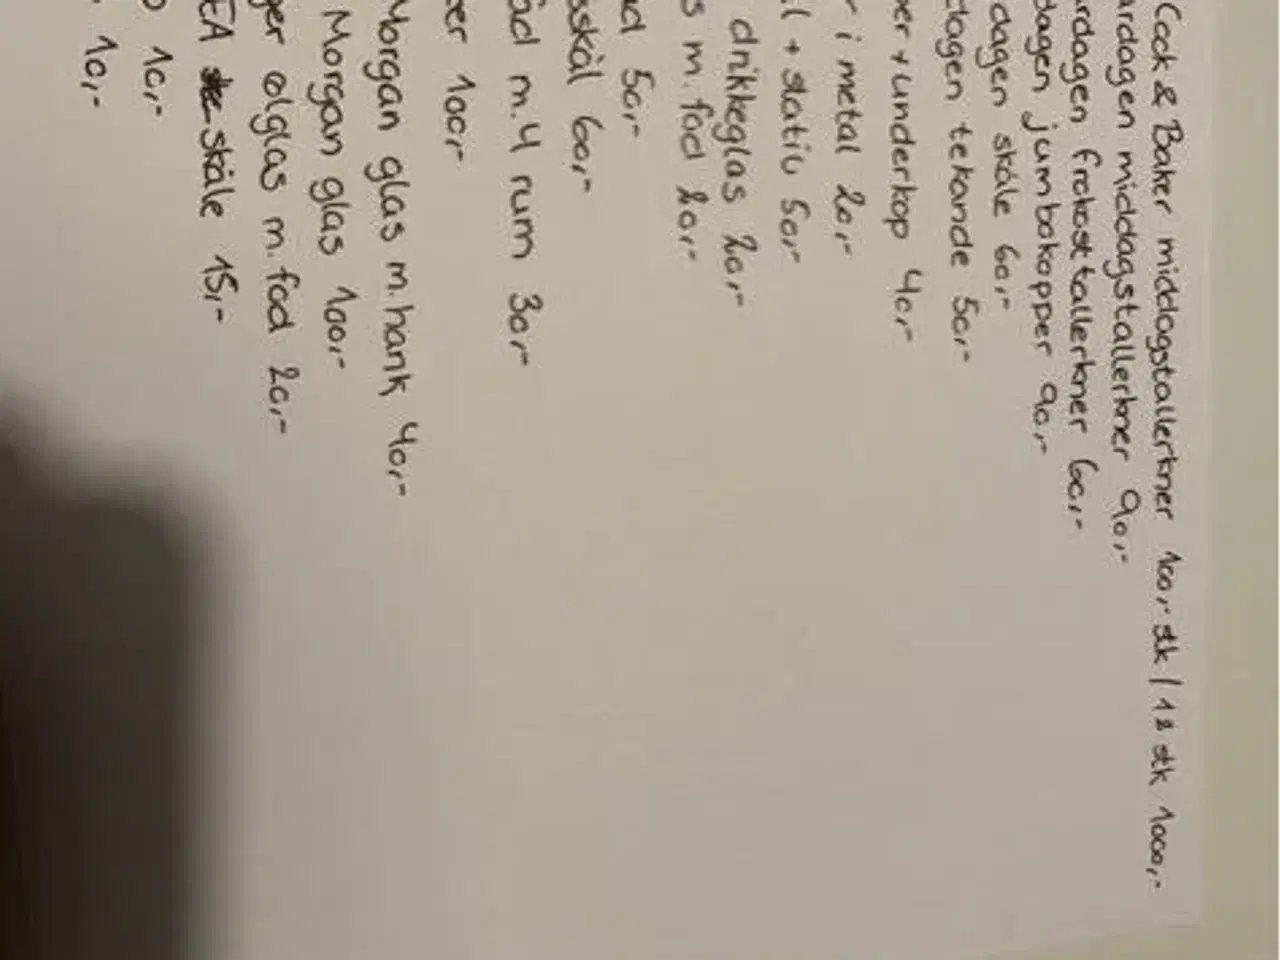 Cook & Baker middagstallerkner 100,- stk / 12 stk 1000,-
ardagen middagstallerkner 90,-
rdagen frokosttallerkner 60,-
dagen jumbokopper 90,-
dagen skåle 60,-
dagen tekande 50,-
per + underkop 40,-
r i metal 20,-
l + stativ 50,-
drikkeglas 20,-
s m. fod 20,-
ad 50,-
sskål 60,-
fad m. 4 rum 30,-
ter 100,-
Morgan glas m. hank 40,-
Morgan glas 100,-
ger ølglas m. fod 20,-
EA skåle 15,-
10,-
10,-